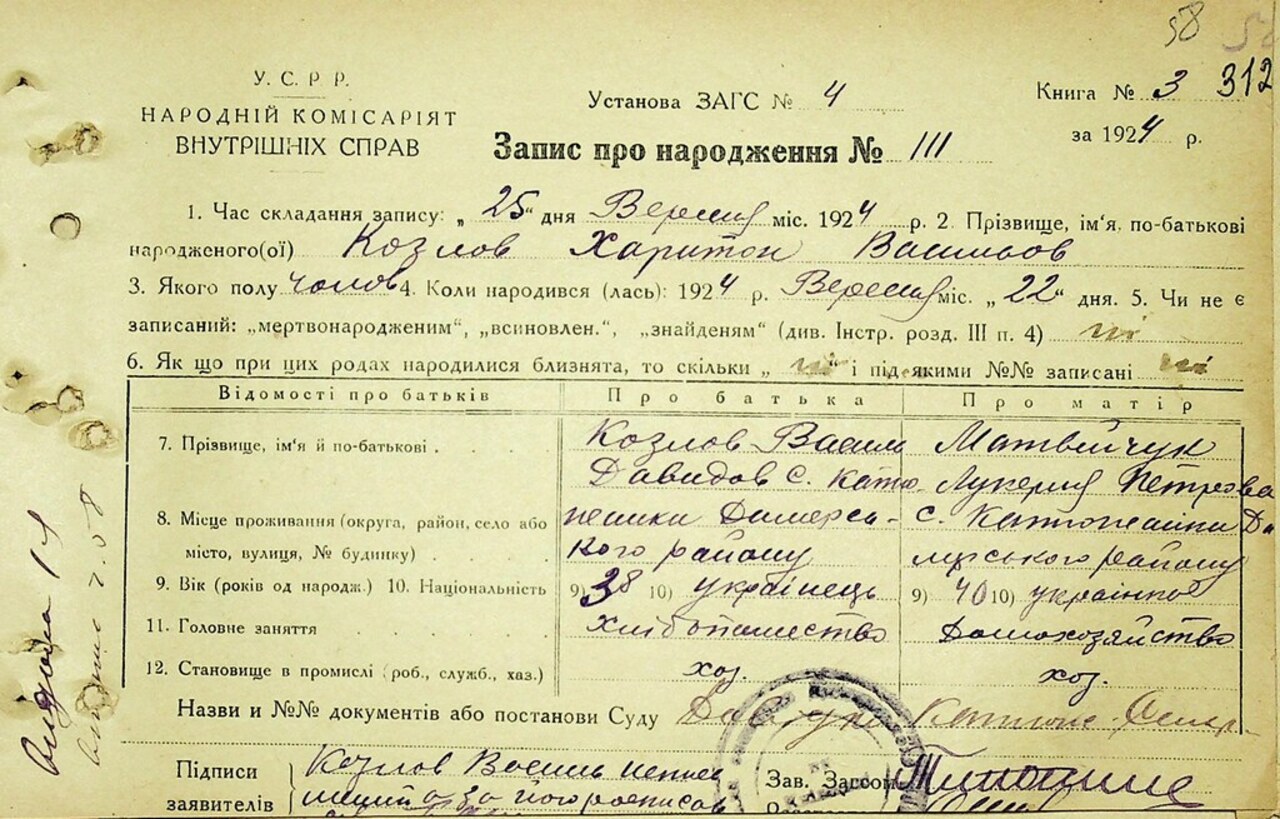 58
У. С. Р. Р.
НАРОДНІЙ КОМІСАРІЯТ
ВНУТРІШНІХ СПРАВ
Установа ЗАГС № 4
Книга № 3 312
за 1924 р.
Запис про народження № 111
1. Час складання запису: „25" дня Вересня міс. 1924 р. 2. Прізвище, ім'я, по-батькові
народженого(ої) Козлов Харитон Васильов
3. Якого полу чолов 4. Коли народився (лась): 1924 р. Вересня міс. „22" дня. 5. Чи не є
записаний: „мертвонародженим", „всиновлен.", „знайденям" (див. Інстр. розд. III п. 4) ні
6. Як що при цих родах народилися близнята, то скільки „ні" і під якими №№ записані ні
Відомості про батьків Про батька Про матір
7. Прізвище, ім'я й по-батькові Козлов Василь Матвійчук
Давидов с. Катю- Лукерия Петрова
8. Місце проживання (округа, район, село або пешки Димерсь- с. Катюпешки Ди
місто, вулиця, № будинку) кого району мерського району
9. Вік (років од народж.) 10. Національність 9) 38 10) українець 9) 40 10) українка
11. Головне заняття хлібопашество Домохозяйство
12. Становище в промислі (роб., служб., хаз.) хоз. хоз.
Назви и №№ документів або постанови Суду
Підписи Козлов Василь Зав. Загсом
заявителів а за його росписав